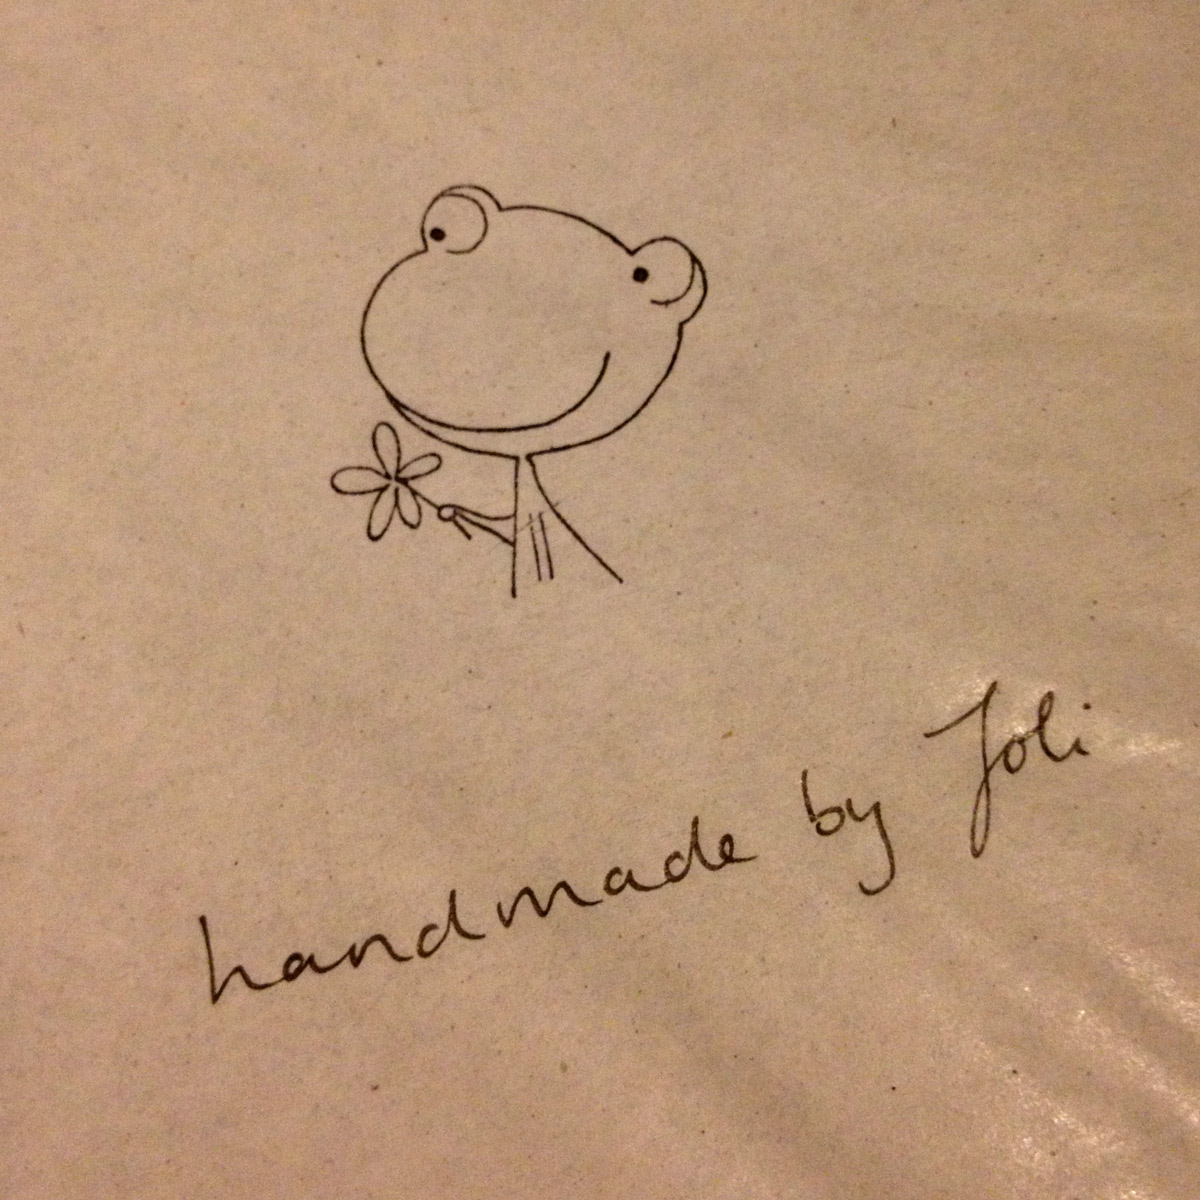 handmade by Joli